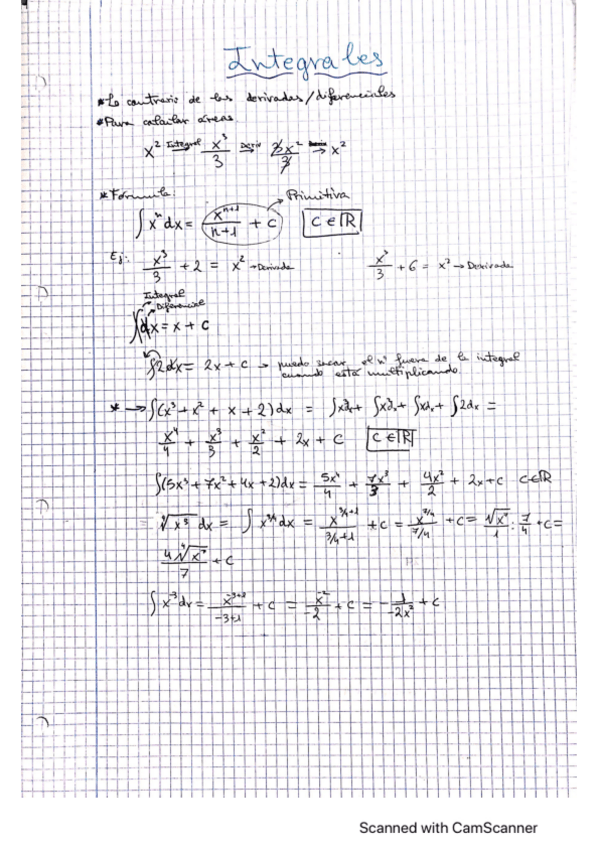 Integrales
* Lo contrario de las derivadas/diferenciales
* Para calcular áreas.
x² Integral→ x³/3 Deriv→ 3x²/3 → x²
* Fórmula: → Primitiva
∫xⁿdx = xⁿ⁺¹/n+1 + C C ∈ ℝ
Ej: x³/3 + 2 = x² → Derivada x³/3 + 6 = x² → Derivada
Integral
Diferencial
∫dx = x + C
∫2dx = 2x + C → puedo sacar el nº fuera de la integral
cuando está multiplicando.
* → ∫(x³ + x² + x + 2)dx = ∫x³dx + ∫x²dx + ∫xdx + ∫2dx =
x⁴/4 + x³/3 + x²/2 + 2x + C C ∈ ℝ
∫(5x³ + 7x² + 4x + 2)dx = 5x⁴/4 + 7x³/3 + 4x²/2 + 2x + C C ∈ ℝ
⁴√x³ dx = ∫x^(3/4)dx = x^(3/4+1)/(3/4+1) + C = x^(7/4)/(7/4) + C = ⁴√x⁷/1 : 7/4 + C =
4 ⁴√x⁷/7 + C
∫x⁻³dx = x⁻³⁺¹/-3+1 + C = x⁻²/-2 + C = -1/-2x² + C
Scanned with CamScanner